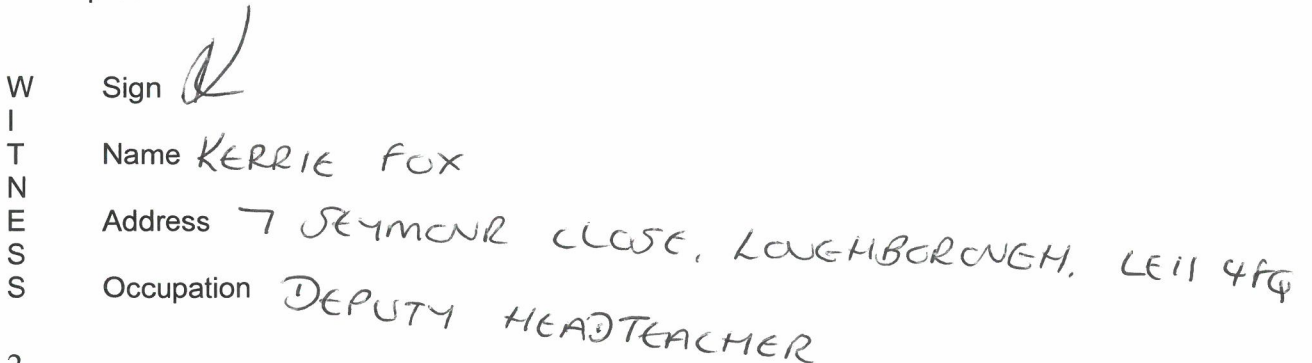 W
I
T
N
E
S
S
Sign
Name KERRIE FOX
Address 7 SEYMOUR CLOSE, LOUGHBOROUGH. LE11 4FQ
Occupation DEPUTY HEADTEACHER